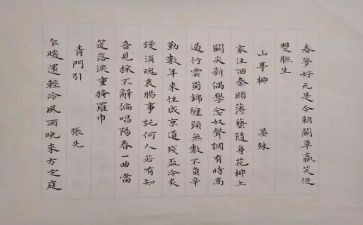 春夢好元是今朝鬭草赢笑從
雙臉生
山亭柳 晏殊
家住西秦賭薄藝隨身花柳上
鬭尖新偶學念奴聲調有時高
遏行雲蜀錦纏頭無數不負辛
勤數年來往咸京道殘盃冷炙
謾消魂衷腸事託何人若有知
音見採不辭徧唱陽春一曲當
筵落淚重掩羅巾
青門引 張先
乍暖還輕冷風雨晚來方定庭